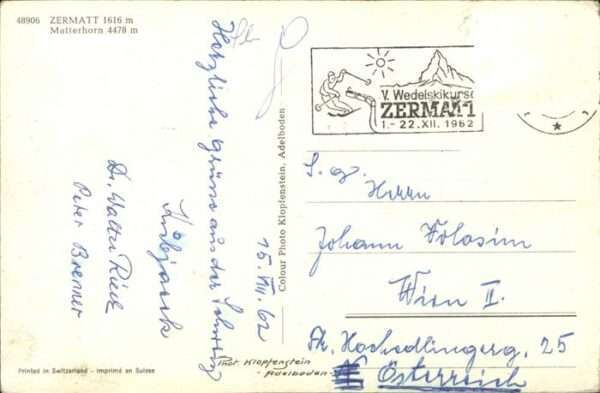 48906 ZERMATT 1616 m
Matterhorn 4478 m
Herzliche Grüsse aus der Schweiz
Dr. Walter
Peter Brenner
15. VII. 62
Colour Photo Klopfenstein, Adelboden
V. Wedelskikurse
ZERMATT
1.-22.XII.1962
S. g.
Herrn
Johann
Wien II.
Hochedlingerg. 25
Österreich
Phot Klopfenstein
- Adelboden -
Printed in Switzerland - Imprimé en Suisse